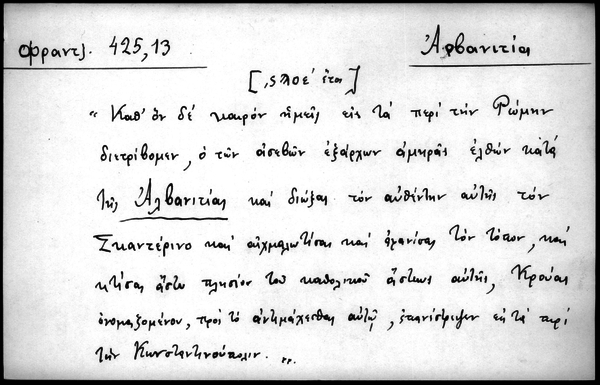 Φραντζ. 425,13
Ἀρβανιτία
[ ͵ϛ λοε' ἔτει ]
" Καθ' ὃν δέ καιρόν ἡμεῖς εἰς τά περί τήν Ρώμην
διετρίβομεν, ὁ τῶν ἀσεβῶν ἐξάρχων ἀμηρᾶς ἐλθών κατά
τῆς Ἀλβανιτίας καί διώξας τόν αὐθέντην αὐτῆς τόν
Σκαντέρινο καί αἰχμαλωτίσας καί ἀφανίσας τόν τόπον, καί
κτίσας ἄστυ πλησίον τοῦ καθολικοῦ ἄστεως αὐτῆς, Κρούας
ὀνομαζομένου, πρός τό ἀντιμάχεσθαι αὐτῷ, ἐπανέστρεψεν εἰς τά περί
τήν Κωνσταντινούπολιν. "